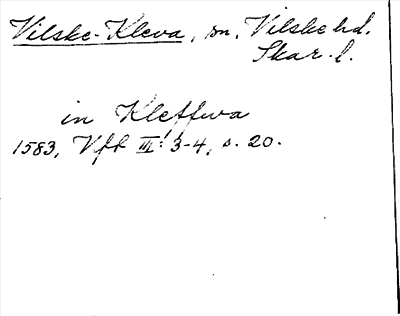 Vilske-Kleva, sn, Vilske hd.
Skar. l.
in Kleffwa
1583, Vft III: 3-4, s. 20.